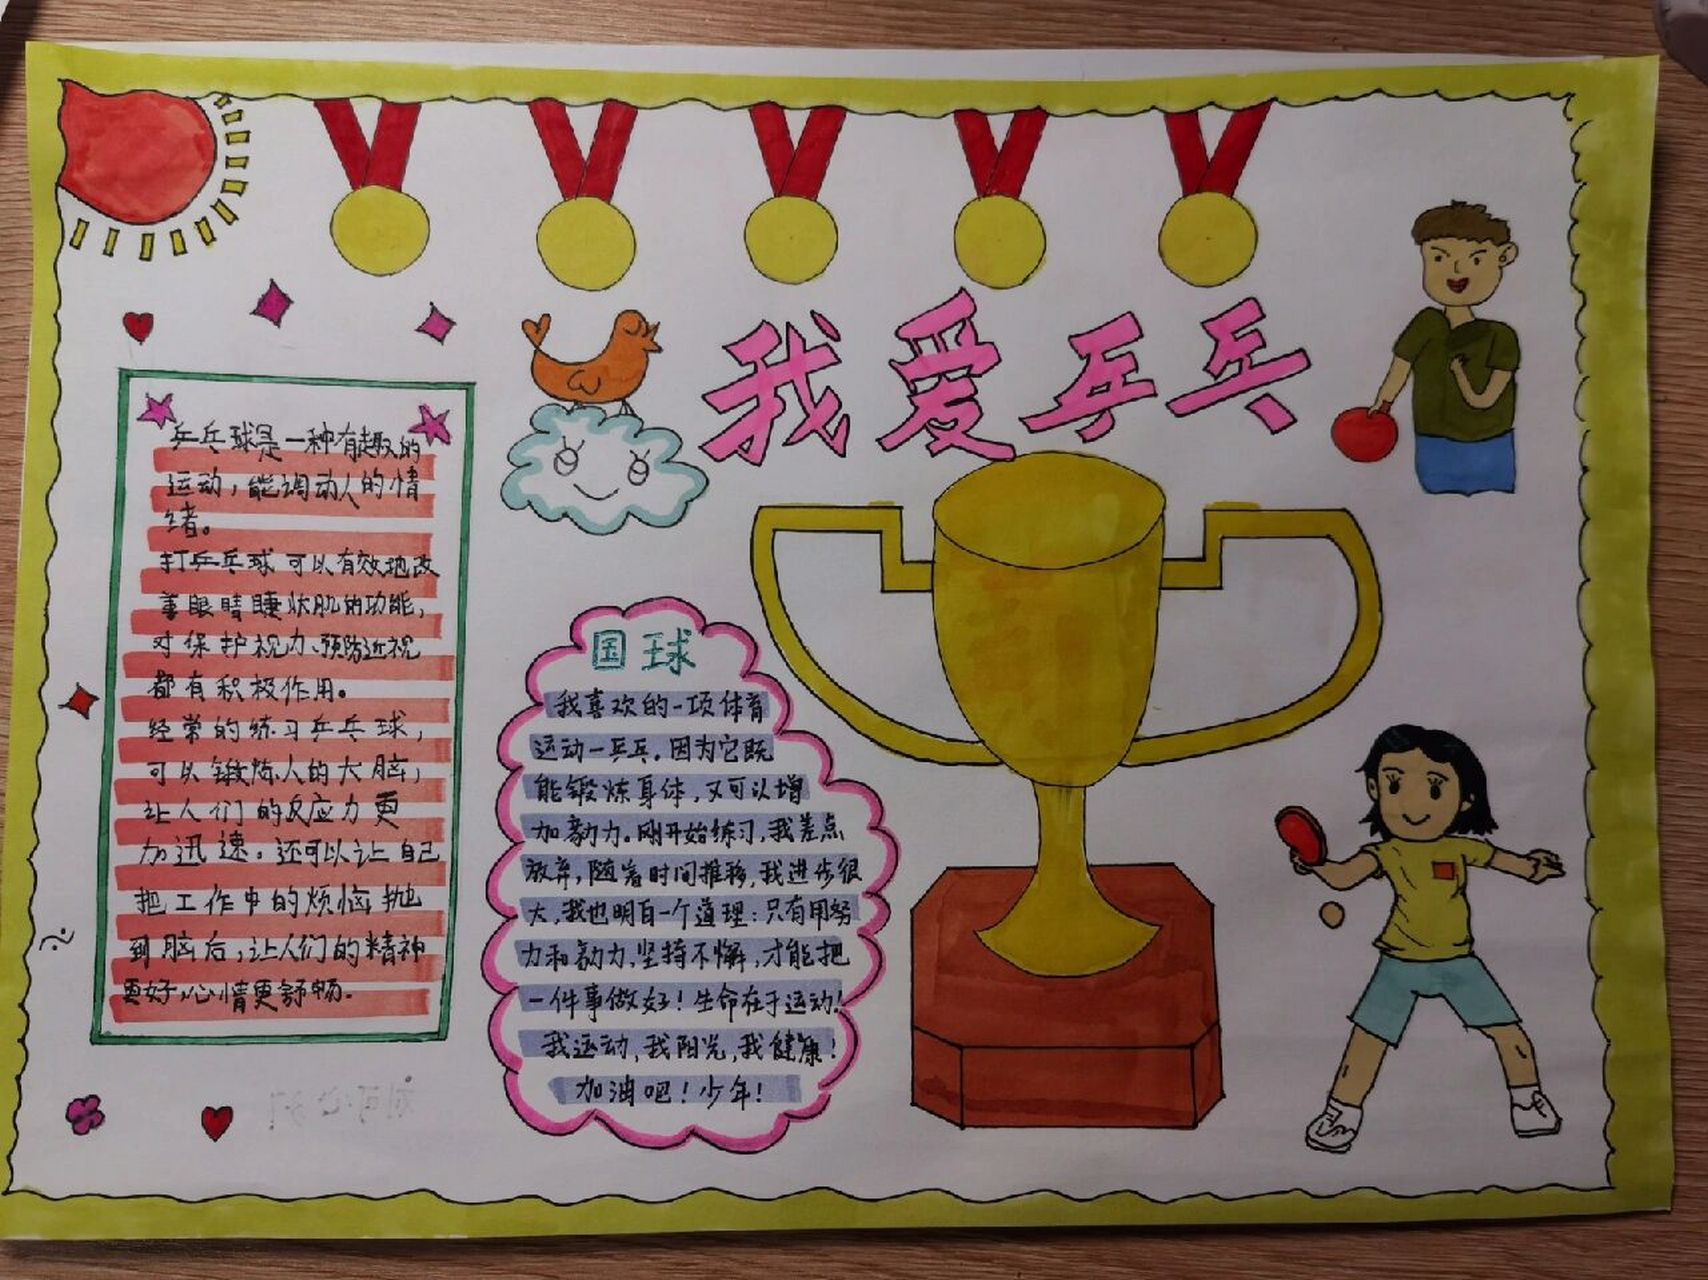 我爱乒乓
乒乓球是一种有趣的
运动，能调动人的情
绪。
打乒乓球可以有效地改
善眼睛睫状肌的功能，
对保护视力、预防近视
都有积极作用。
经常的练习乒乓球，
可以锻炼人的大脑，
让人们的反应力更
加迅速。还可以让自己
把工作中的烦恼抛
到脑后，让人们的精神
更好，心情更舒畅。
国球
我喜欢的一项体育
运动一乒乓，因为它既
能锻炼身体，又可以增
加毅力。刚开始练习，我差点
放弃，随着时间推移，我进步很
大，我也明白一个道理：只有用努
力和毅力，坚持不懈，才能把
一件事做好！生命在于运动！
我运动，我阳光，我健康！
加油吧！少年！